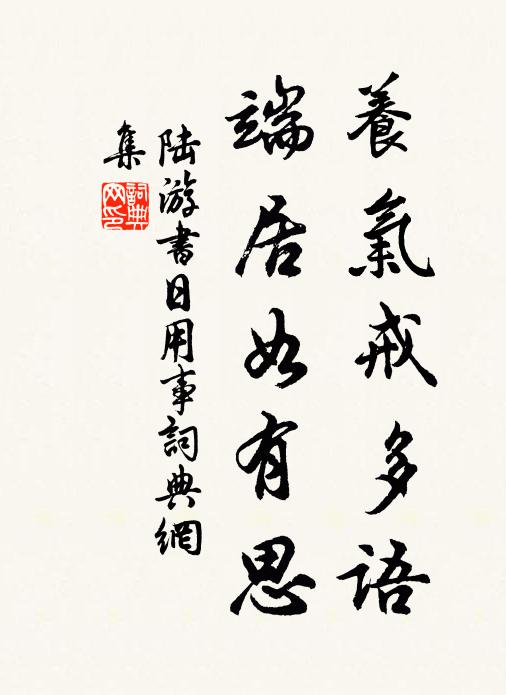 養氣戒多語
端居如有思
陸游書日用事詞典網
集
詞典
网印